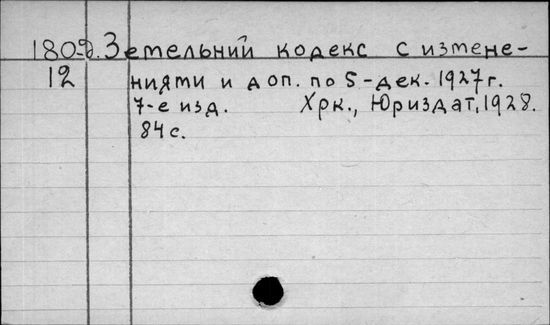 180-д. Земельний кодекс с измене-
12 ниями и доп. по 5-дек. 1927 г.
7-е изд. Хрк., Юриздат, 1928.
84 с.